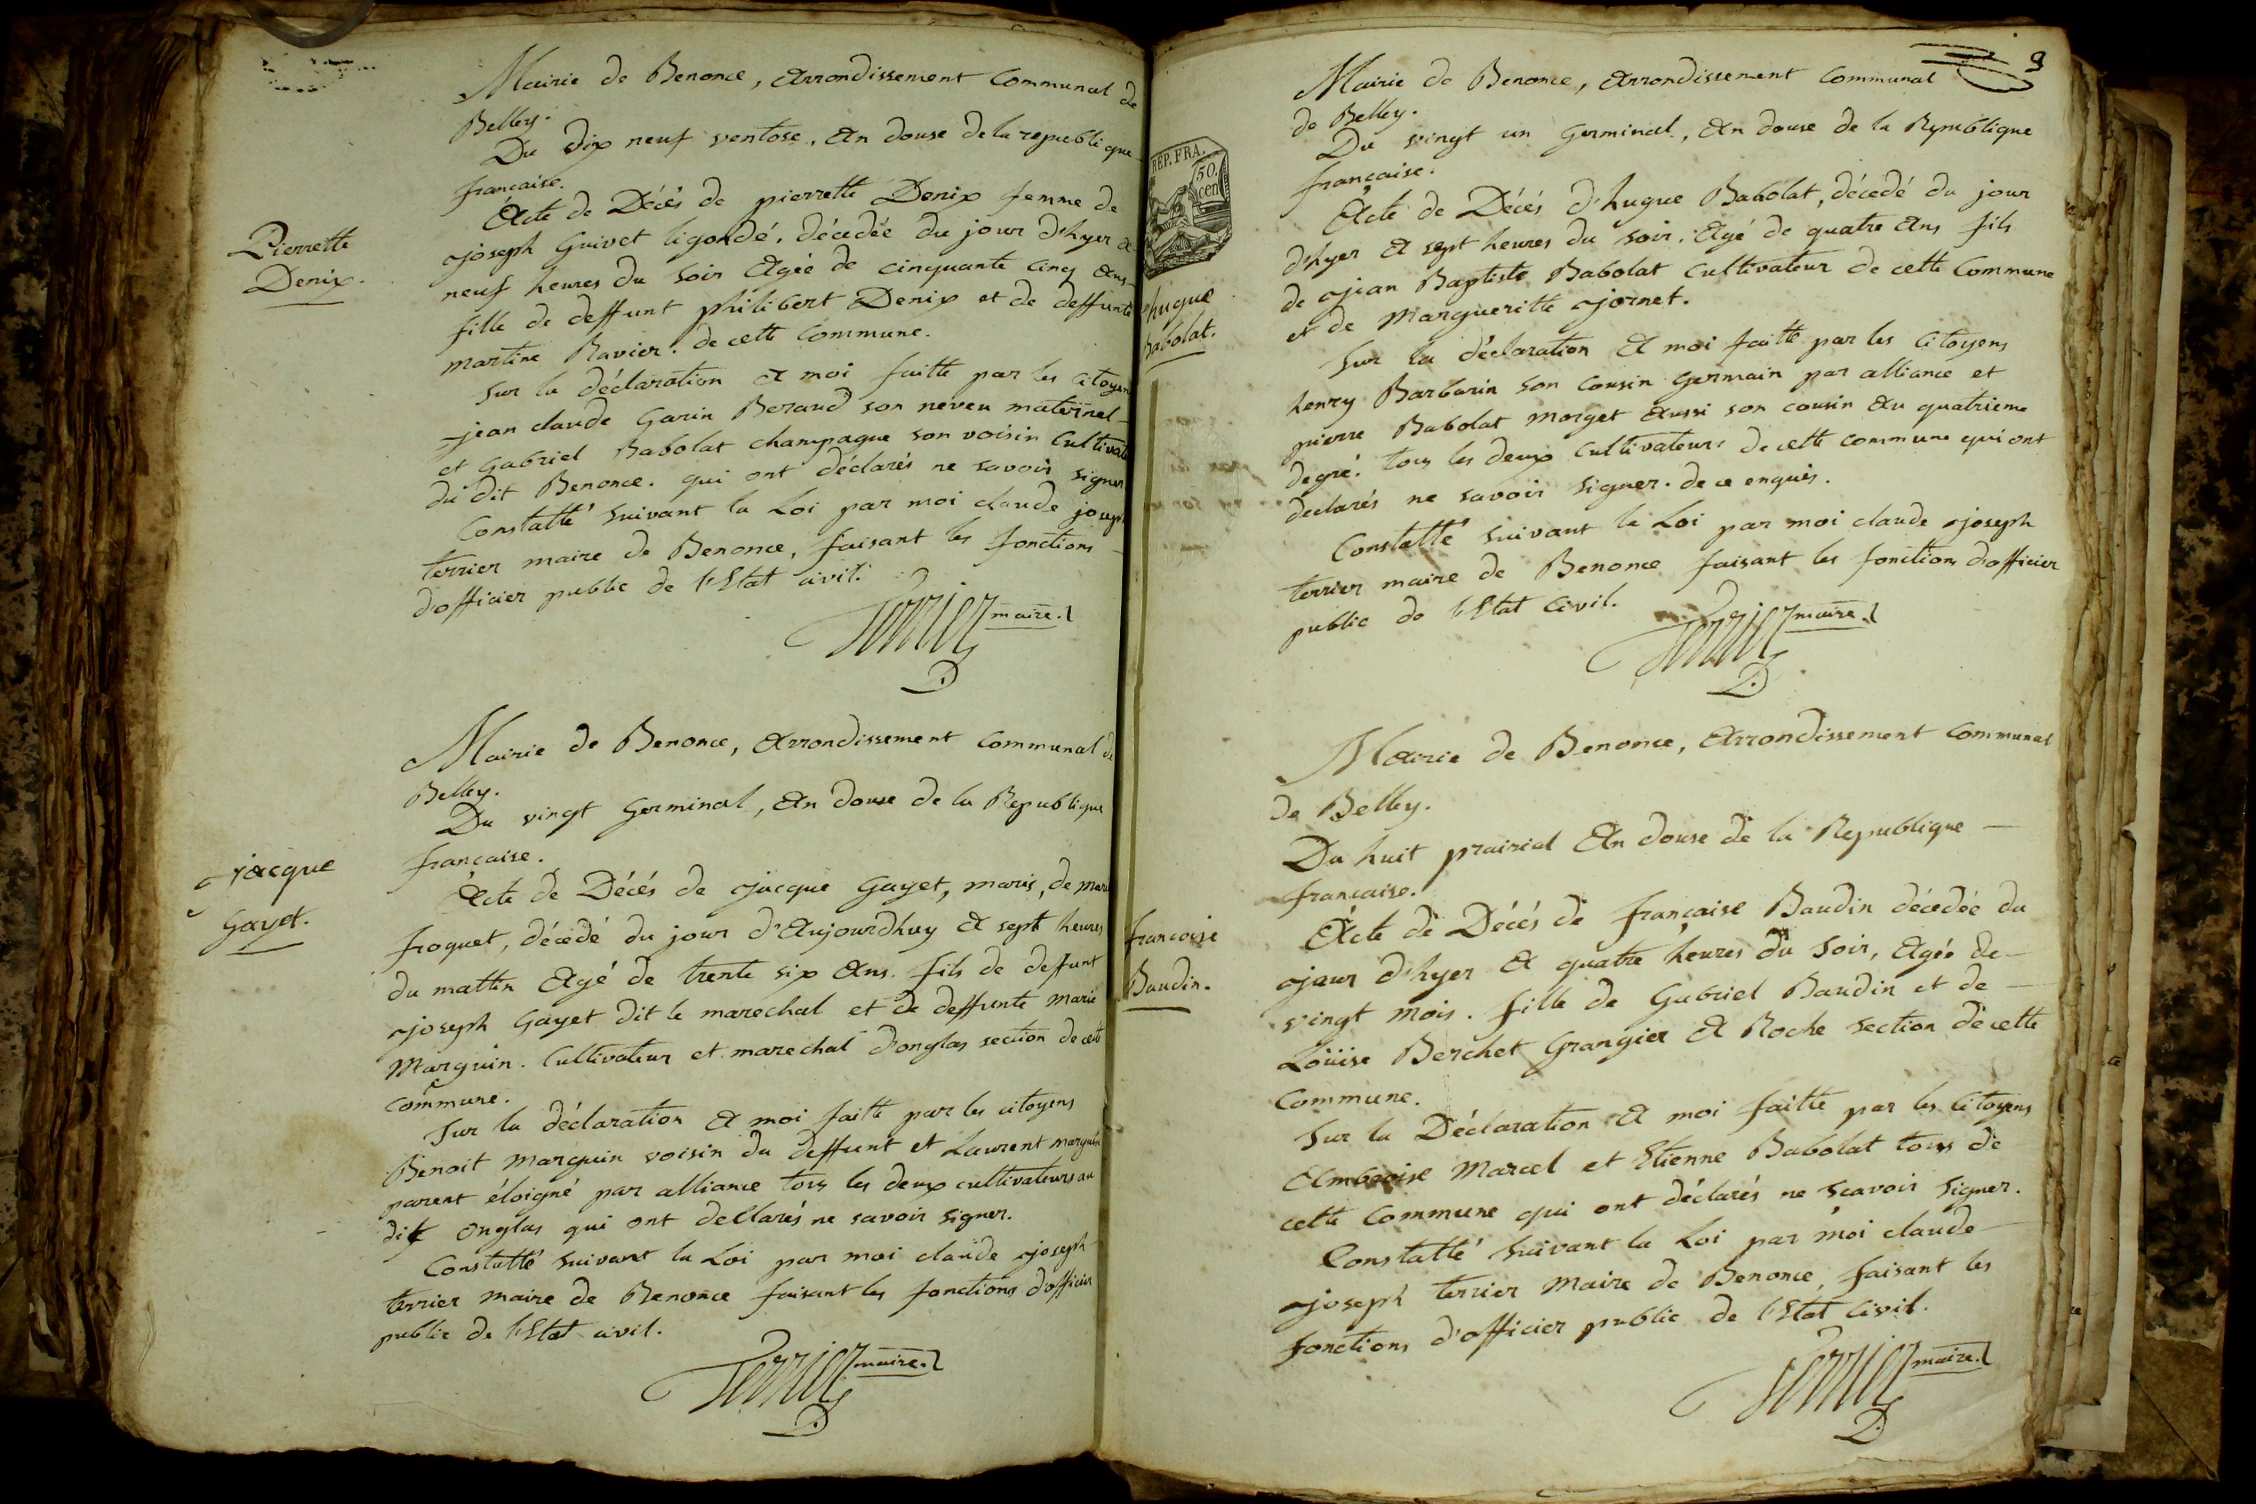 Mairie de Benonce, Arrondissement Communal de
Belley.
Du dix neuf ventose, An douse de la republique
francaise.
Pierrette
Denix.
Acte de Décés de pierrette Denix femme de
joseph Guivet ligondé, décedée du jour d'hyer a
neuf heures du soir Agée de cinquante cinq ans
fille de deffunt philibert Denix et de deffunte
martine Ravier. de cette Commune.
Sur la déclaration a moi faitte par les citoyens
jean claude Garin Beraud son neveu maternel
et Gabriel Babolat champagne son voisin Cultivate
du dit Benonce. qui ont déclarés ne savoir signer
Constatté suivant la Loi par moi claude joseph
terrier maire de Benonce, faisant les fonctions
d'officier public de l'Etat civil.
Terrier maire.
Mairie de Benonce, Arrondissement Communal de
Belley.
Du vingt Germinal, An douse de la Republique
francaise.
jacque
Gayet.
Acte de Décés de jacque Gayet, maris, de marie
froquet, décedé du jour d'Aujourdhuy a sept heures
du mattin Agé de trente six Ans. fils de deffunt
joseph Gayet dit le marechal et de deffunte marie
Marguin. Cultivateur et marechal d'onglas section de cette
commune.
Sur la déclaration a moi faitte par les citoyens
Benoit Marguin voisin du deffunt et Laurent marguin
parent éloigné par alliance tous les deux cultivateurs au
dit onglas qui ont déclarés ne savoir signer.
Constatté suivant la Loi par moi claude joseph
terrier maire de Benonce faisant les fonctions d'officier
public de l'Etat civil.
Terrier maire.
9
Mairie de Benonce, Arrondissement Communal
de Belley.
Du vingt un Germinal, An douse de la Republique
francaise.
REP. FRA.
50.
cen
hugue
Babolat.
Acte de Décés d'hugue Babolat, décedé du jour
d'hyer a sept heures du soir, Agé de quatre Ans fils
de jean Baptiste Babolat Cultivateur de cette Commune
et de Margueritte jornet.
Sur la déclaration a moi faitte par les Citoyens
henry Barbarin son Cousin Germain par alliance et
pierre Babolat Morget Aussi son cousin Au quatrieme
degré. tous les deux Cultivateurs de cette commune qui ont
declarés ne savoir signer. de ce enquis.
Constatté suivant la Loi par moi claude joseph
terrier maire de Benonce faisant les fonctions d'officier
public de l'Etat Civil.
Terrier maire.
Mairie de Benonce, Arrondissement Communal
de Belley.
Du huit prairial An douse de la Republique
francaise.
francoise
Baudin.
Acte de Décés de française Baudin décedée du
jour d'hyer a quatre heures du soir, Agée de
vingt mois. fille de Gabriel Baudin et de
Loüise Berchet Grangier a Roche section de cette
Commune.
Sur la Déclaration a moi faitte par les Citoyens
Ambroise Marcel et Etienne Babolat tous de
cette Commune qui ont déclarés ne scavoir signer.
Constatté suivant la Loi par moi claude
joseph terrier Maire de Benonce, faisant les
fonctions d'officier public de l'Etat Civil.
Terrier maire.